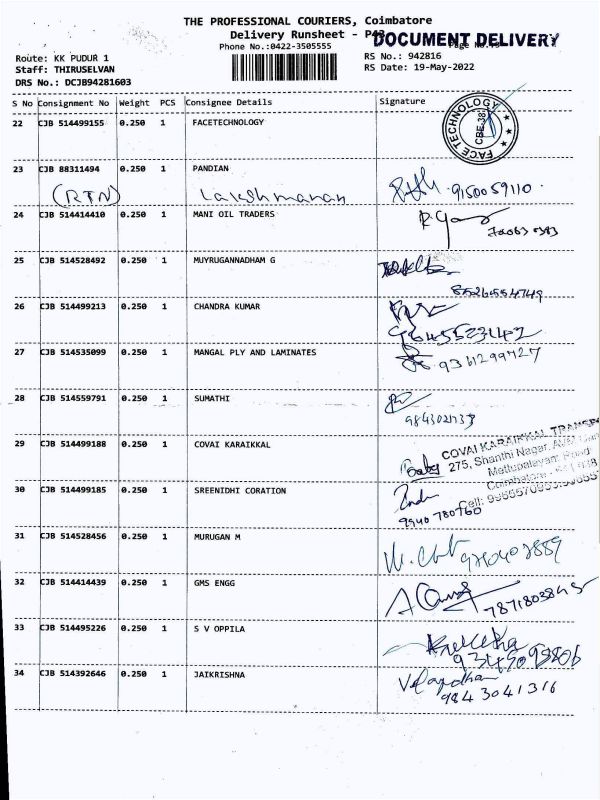 THE PROFESSIONAL COURIERS, Coimbatore
Delivery Runsheet - P43
DOCUMENT DELIVERY
Phone No.:0422-3505555
Route: KK PUDUR 1
RS No.: 942816
Staff: THIRUSELVAN
RS Date: 19-May-2022
DRS No.: DCJB94281603
S No Consignment No Weight PCS Consignee Details Signature
22 CJB 514499155 0.250 1 FACETECHNOLOGY
FACE TECHNOLOGY
23 CJB 88311494 0.250 1 PANDIAN
(RTN) Lakshmanan 9150059110
24 CJB 514414410 0.250 1 MANI OIL TRADERS
25 CJB 514528492 0.250 1 MUYRUGANNADHAM G
8526554749
26 CJB 514499213 0.250 1 CHANDRA KUMAR
27 CJB 514535099 0.250 1 MANGAL PLY AND LAMINATES
9361299427
28 CJB 514559791 0.250 1 SUMATHI
29 CJB 514499188 0.250 1 COVAI KARAIKKAL
COVAI KARAIKKAL
275, Shanthi Nagar,
Mettupalayam Road
30 CJB 514499185 0.250 1 SREENIDHI CORATION
Cell:
9940 780760
31 CJB 514528456 0.250 1 MURUGAN M
32 CJB 514414439 0.250 1 GMS ENGG
7871803845
33 CJB 514495226 0.250 1 S V OPPILA
34 CJB 514392646 0.250 1 JAIKRISHNA
9843041316